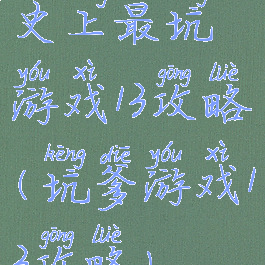 史上最坑
yóu xì gōng lüè
游戏13攻略
kēng diē yóu xì
(坑爹游戏1
gōng lüè
3攻略)